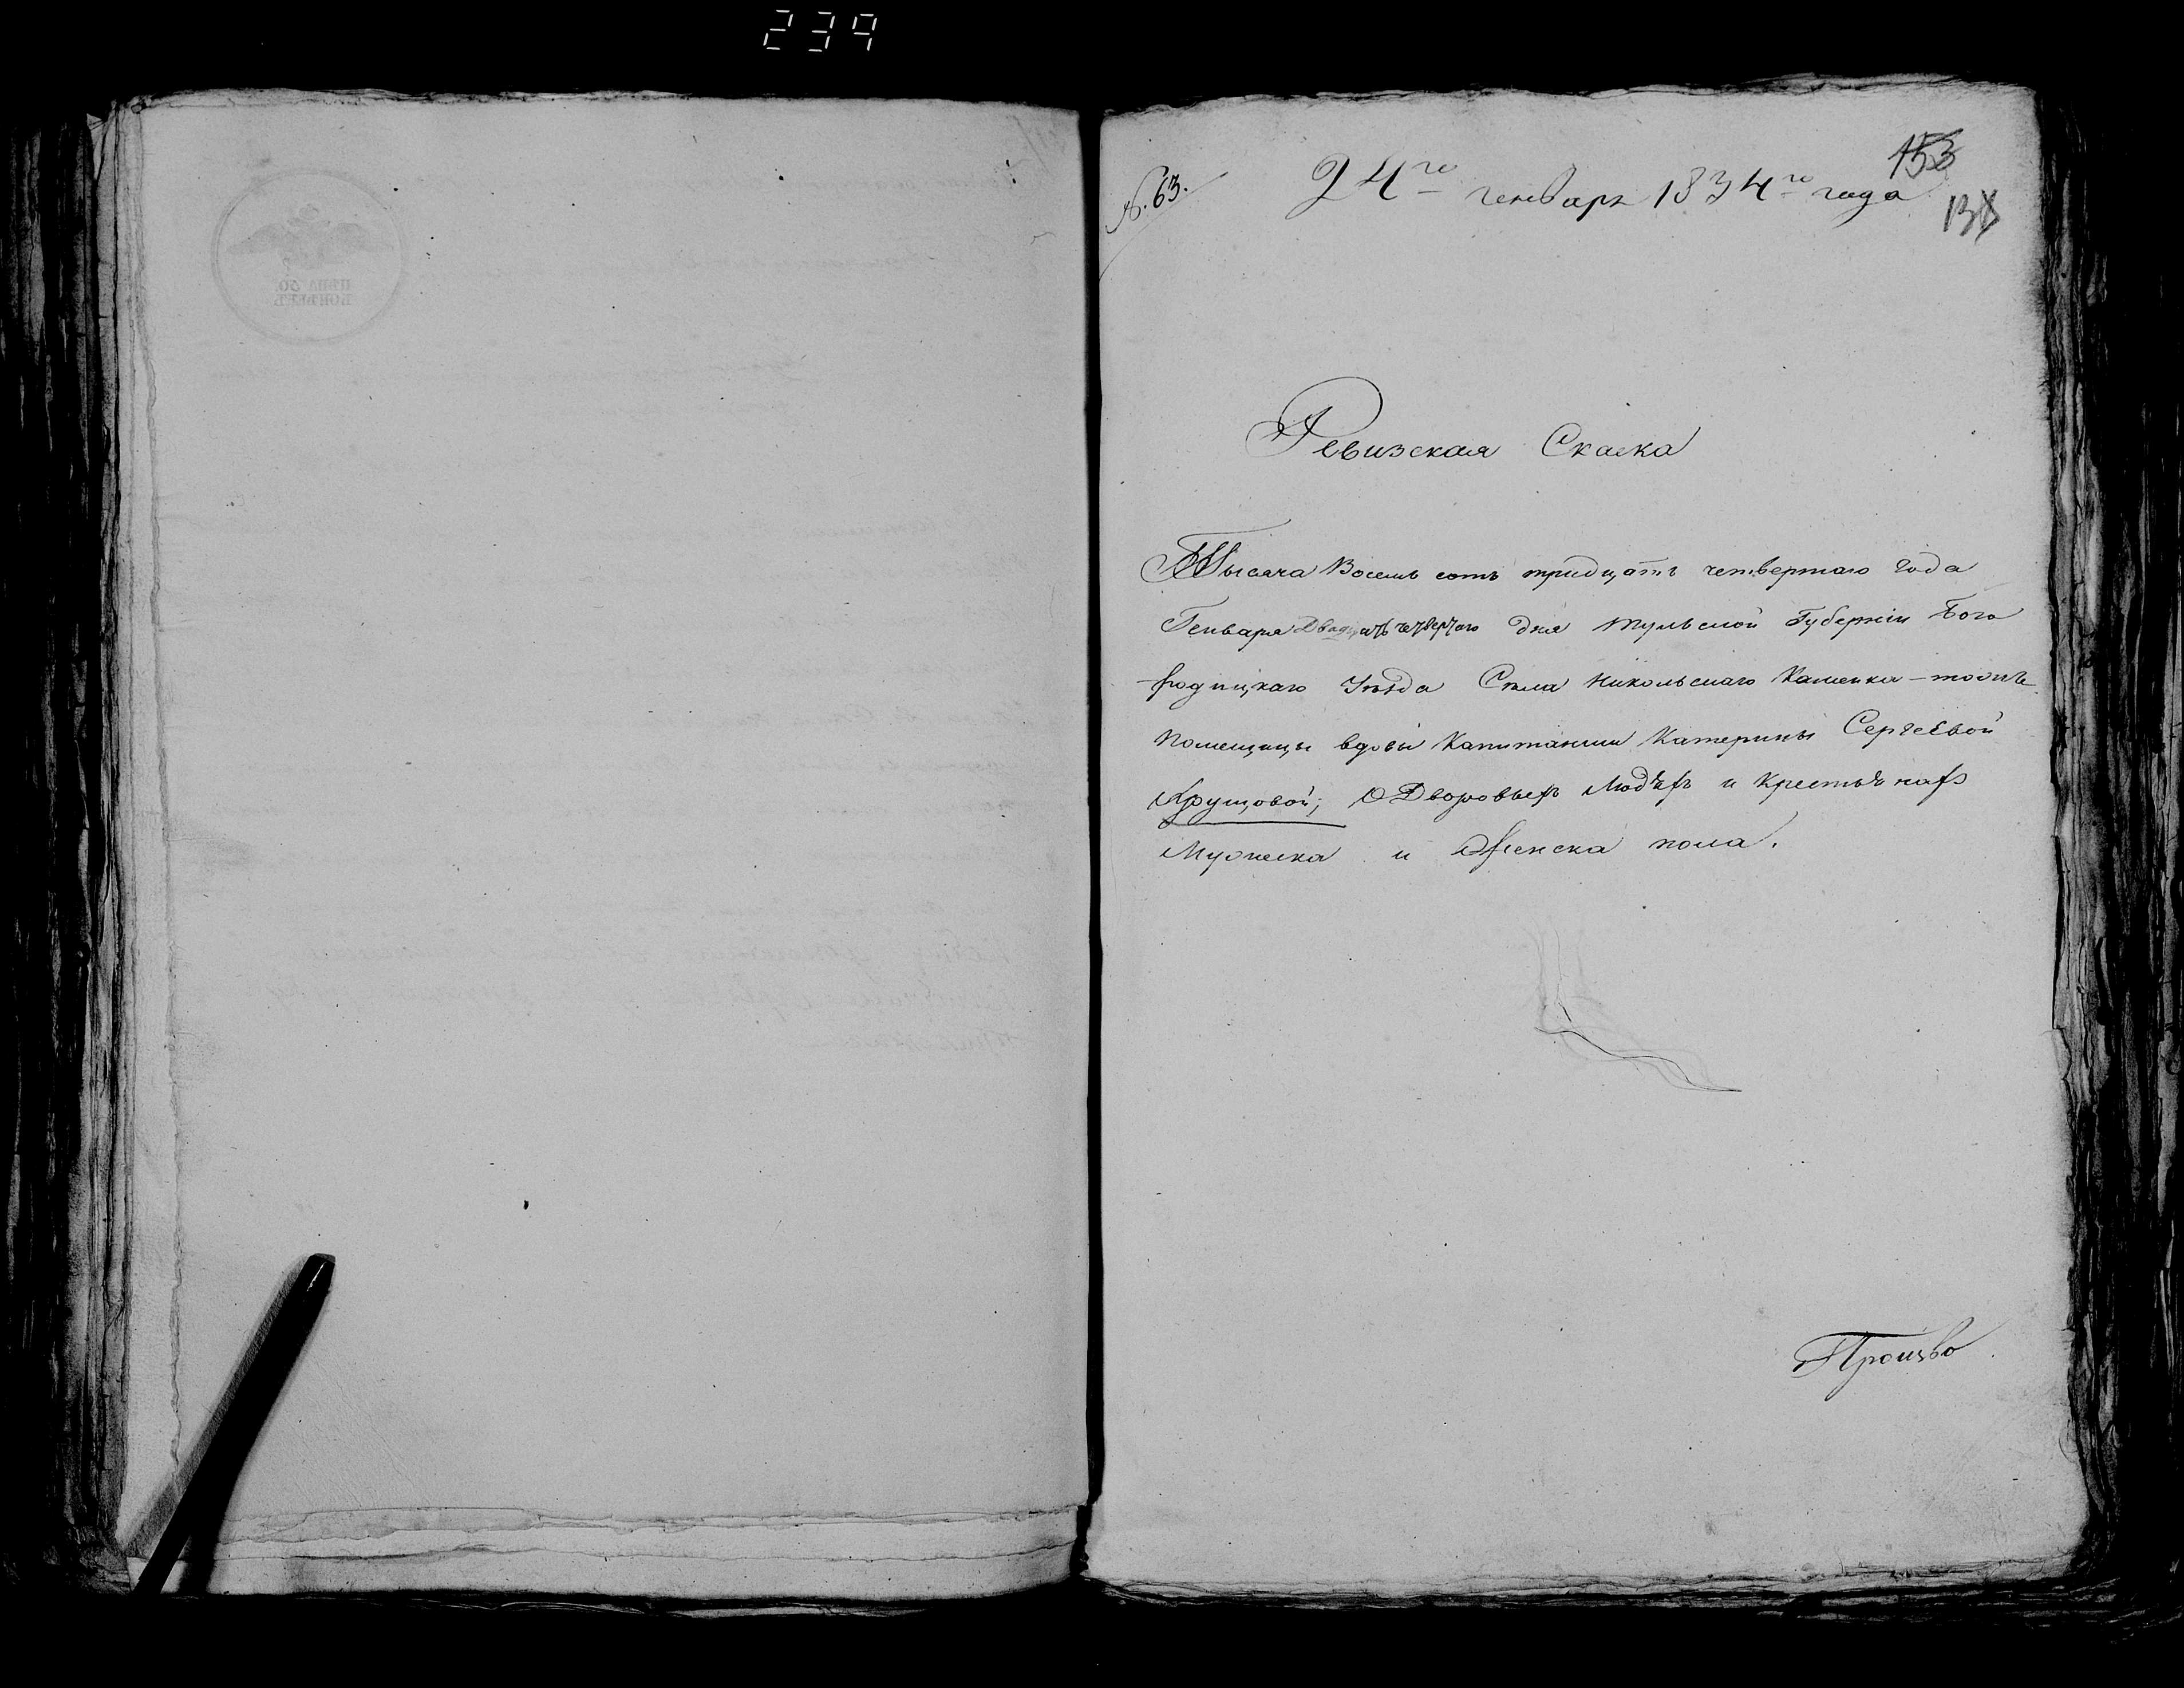 239
N. 63.
24го генваря 1834го года
153
Ревизская Скаска
Тысяча Восемь сотъ тридцать четвертаго года
Генваря Двадцать четвертаго дня Тульской Губерніи Бого
-родицкаго Уѣзда Села Никольскаго Каменка-тожъ
Помещицы вдовы Капитанши Катерины Сергеевой
Хрущовой; О Дворовыхъ Людѣхъ и Крестьянахъ
Мужеска и Женска пола.